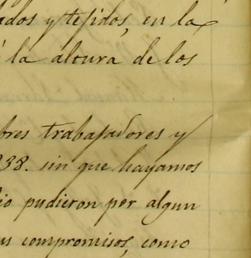 ados y tejidos, en la
la altura de los
bres trabajadores y
838. sin que hayamos
io pudieron per algun
us compromisos, como